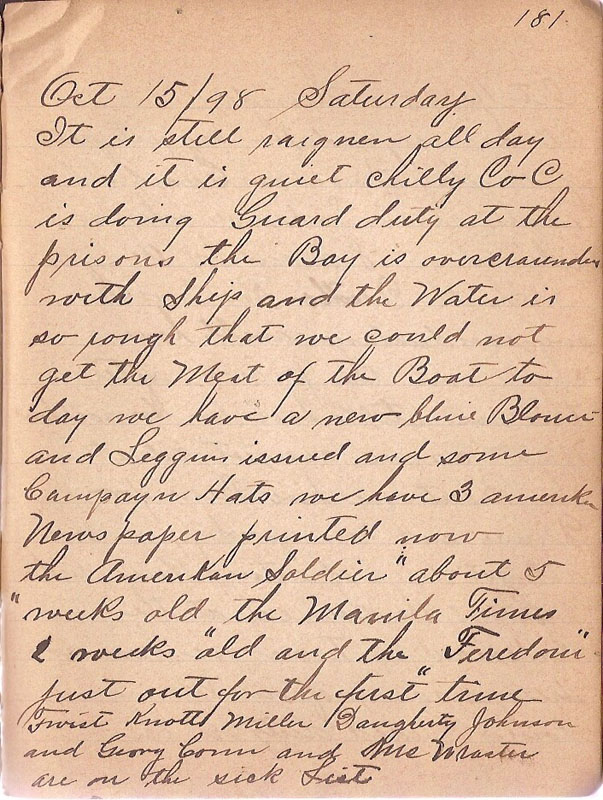 181.
Oct 15/98 Saturday
It is still raignen all day
and it is quiet chilly Co C
is doing Guard duty at the
prisons the Bay is overcraunden
with Ship and the Water is
so rough that we could not
get the Meat of the Boat to
day we have a new blue Blous
and Leggins issued and some
Campayn Hats we have 3 ameriken
News paper printed now
the Amerikan Soldier" about 5
"weeks old the Manila Times
2 weeks "old and the "Feredom"
just out for the first "time
Twist Knotts Miller Daugherty Johnson
and Georg Conn and McMaster
are on the sick List